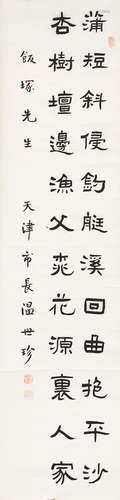 蒲短斜侵釣艇溪回曲抱平沙
杏樹壇邊漁父桃花源裏人家
飯塚先生 天津市長溫世珍